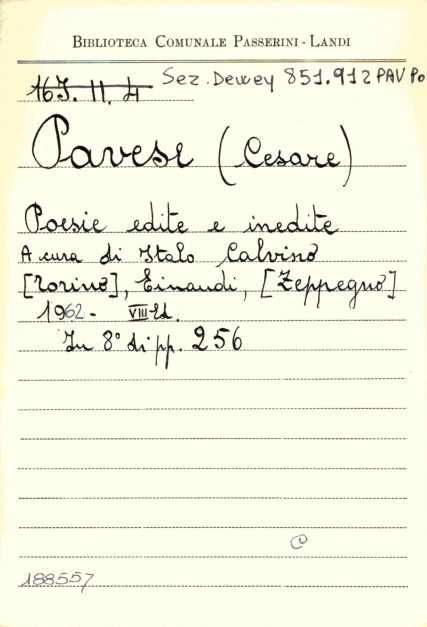 BIBLIOTECA COMUNALE PASSERINI - LANDI
16J. II. 4 Sez. Dewey 851.912 PAV Po
Pavese (Cesare)
Poesie edite e inedite
A cura di Italo Calvino
[Torino], Einaudi, [Zeppegno]
1962 - VIII Ed.
In 8° di pp. 256
C
188557